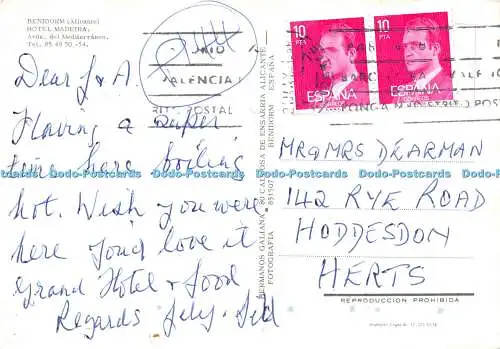 BENIDORM (Alicante)
HOTEL MADEIRA.
Avda. del Mediterráneo.
Tel. 85 49 50 -54.
Dear J & A.
Having a super
time here boiling
hot. Wish you were
here you'd love it
Grand Hotel & food
Regards
VALENCIA
POSTAL
10
PTA
ESPAÑA
10
PTA
ESPAÑA
HERMANOS GALIANA
80 CALLOSA DE ENSARRIA ALICANTE
FOTOGRAFIA
BENIDORM ESPAÑA
MR & MRS DEARMAN
142 RYE ROAD
HODDESDON
HERTS
REPRODUCCION PROHIBIDA
Dodo-Postcards Dodo-Postcards Dodo-Postcards Dodo-Postcards Dodo-Postcards